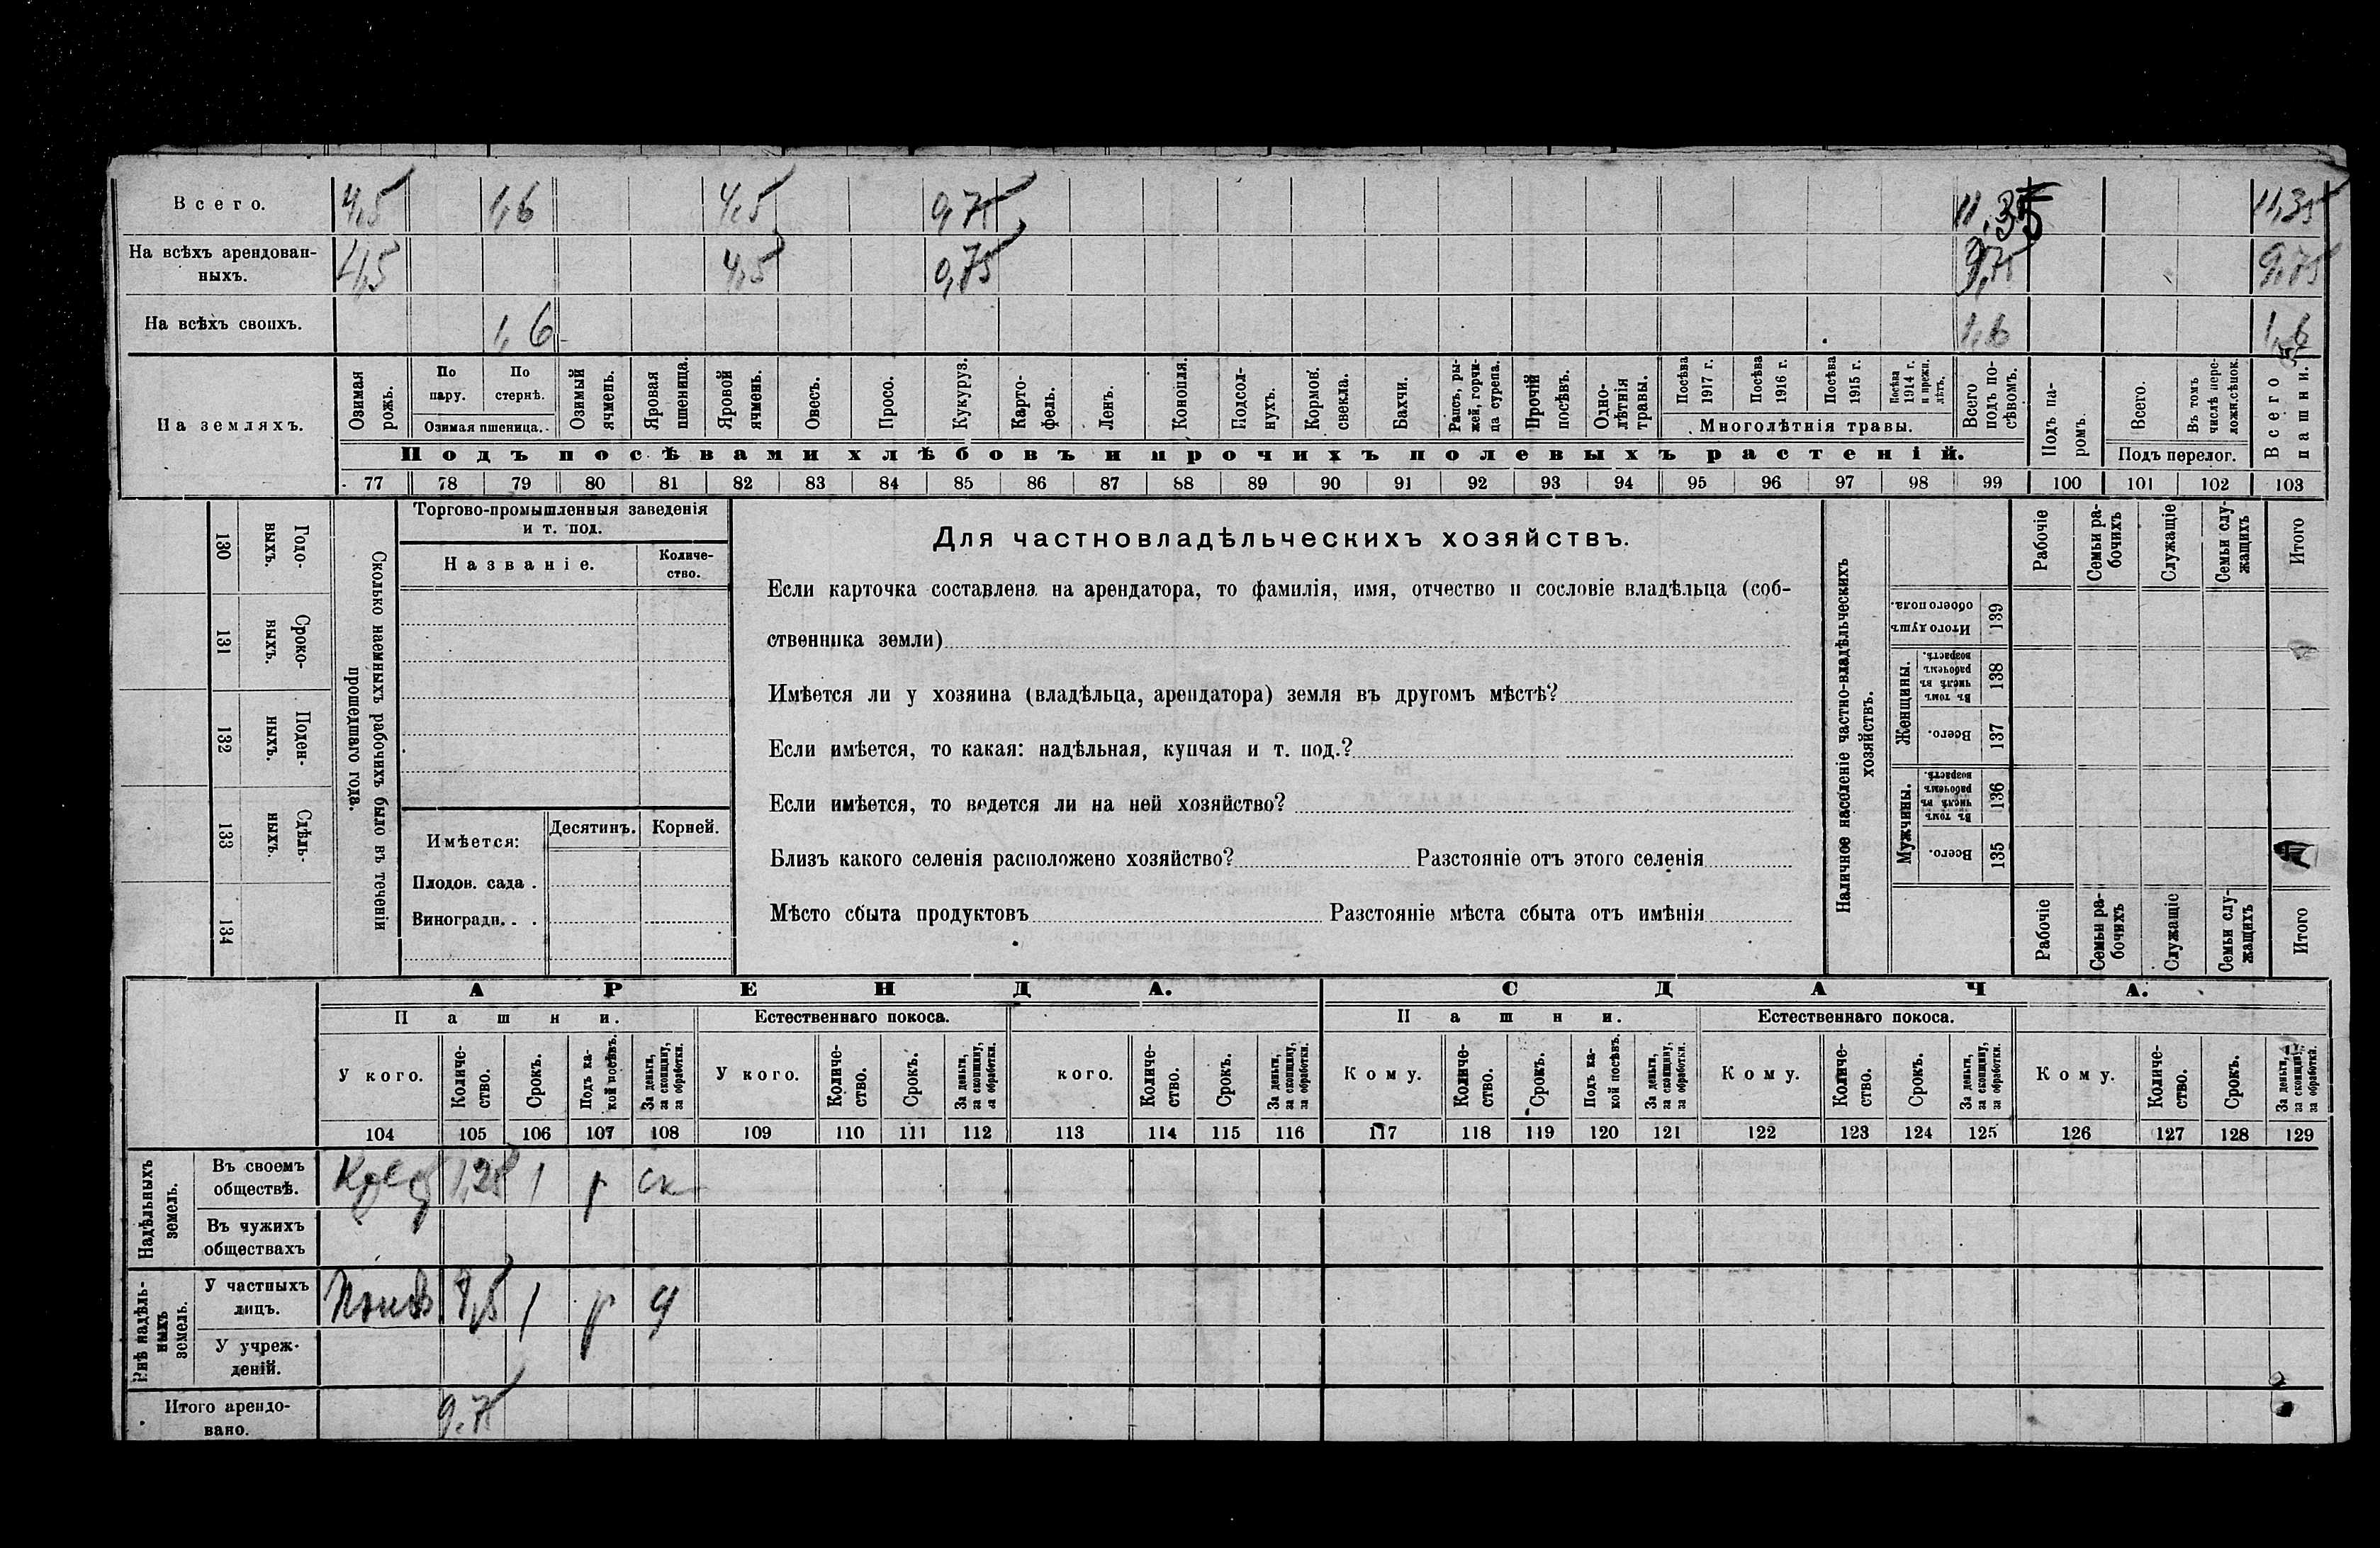 Всего. 4,5 1,6 4,5 0,75 11,35 11,35
На всѣхъ арендован-
ныхъ. 4,5 4,5 0,75 9,75 9,75
На всѣхъ своихъ. 1,6 1,6 1,6
На земляхъ.
Озимая рожь.
По пару.
По стернѣ.
Озимая пшеница.
Озимый ячмень.
Яровая пшеница.
Яровой ячмень.
Овесъ.
Просо.
Кукуруз.
Карто-
фель.
Ленъ.
Конопля.
Подсол-
нухъ.
Кормов. свекла.
Бахчи.
Рапсъ, ры-
жей, горчи-
ца сурепа.
Прочій посѣвъ.
Одно-
лѣтнія травы.
Посѣва 1917 г.
Посѣва 1916 г.
Посѣва 1915 г.
Посѣва 1914 г. и прежн. лѣтъ.
Многолѣтнія травы.
Всего подъ по-
сѣвомъ.
Подъ посѣвами хлѣбовъ и прочихъ полевыхъ растеній.
Подъ па-
ромъ.
Всего.
Въ томъ числѣ пере-
ложн.сѣнок.
Подъ перелог.
Всего пашни.
77 78 79 80 81 82 83 84 85 86 87 88 89 90 91 92 93 94 95 96 97 98 99 100 101 102 103
Сколько наемныхъ рабочихъ было въ теченіи
прошедшаго года.
Годо-
выхъ.
130
Сроко-
выхъ.
131
Поден-
ныхъ.
132
Сдѣль-
ныхъ.
133
134
Торгово-промышленныя заведенія
и т. под.
Названіе.
Количе-
ство.
Имѣется:
Десятинъ. Корней.
Плодов. сада .
Виноградн. . .
Для частновладѣльческихъ хозяйствъ.
Если карточка составлена на арендатора, то фамилія, имя, отчество и сословіе владѣльца (соб-
ственника земли)
Имѣется ли у хозяина (владѣльца, арендатора) земля въ другомъ мѣстѣ?
Если имѣется, то какая: надѣльная, купчая и т. под.?
Если имѣется, то ведется ли на ней хозяйство?
Близъ какого селенія расположено хозяйство? Разстояніе отъ этого селенія
Мѣсто сбыта продуктовъ Разстояніе мѣста сбыта отъ имѣнія
Наличное населеніе частно-владѣльческихъ
хозяйствъ.
Рабочіе
Семьи ра-
бочихъ
Служащіе
Семьи слу-
жащихъ
Итого
Итого душъ обоего пола. 139
Женщины.
Въ томъ числѣ въ рабочемъ возрастѣ. 138
Всего. 137
Мужчины.
Въ томъ числѣ въ рабочемъ возрастѣ. 136
Всего. 135
Рабочіе
Семьи ра-
бочихъ
Служащіе
Семьи слу-
жащихъ
Итого
АРЕНДА. СДАЧА.
Пашни. Естественнаго покоса. Пашни. Естественнаго покоса.
У кого.
Количе-
ство.
Срокъ.
Подъ ка-
кой посѣвъ.
За деньги,
за скопщину,
за обработки.
У кого.
Количе-
ство.
Срокъ.
За деньги,
за скопщину,
за обработки.
кого.
Количе-
ство.
Срокъ.
За деньги,
за скопщину,
за обработки.
Кому.
Количе-
ство.
Срокъ.
Подъ ка-
кой посѣвъ.
За деньги,
за скопщину,
за обработки.
Кому.
Количе-
ство.
Срокъ.
За деньги,
за скопщину,
за обработки.
Кому.
Количе-
ство.
Срокъ.
За деньги,
за скопщину,
за обработка.
104 105 106 107 108 109 110 111 112 113 114 115 116 117 118 119 120 121 122 123 124 125 126 127 128 129
Надѣльныхъ
земель.
Въ своемъ
обществѣ. 1 р ск
Въ чужихъ
обществахъ
Внѣ надѣль-
ныхъ
земель.
У частныхъ
лицъ. 1 р
У учреж-
деній.
Итого арендо-
вано. 9,75